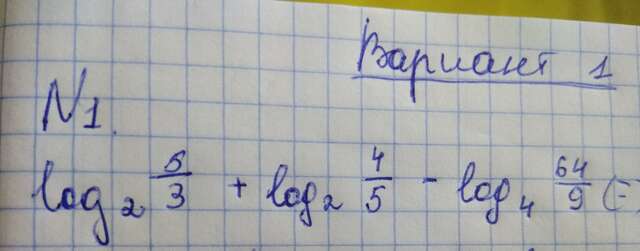 Вариант 1
N1.
log₂ 5/3 + log₂ 4/5 - log₄ 64/9 (=